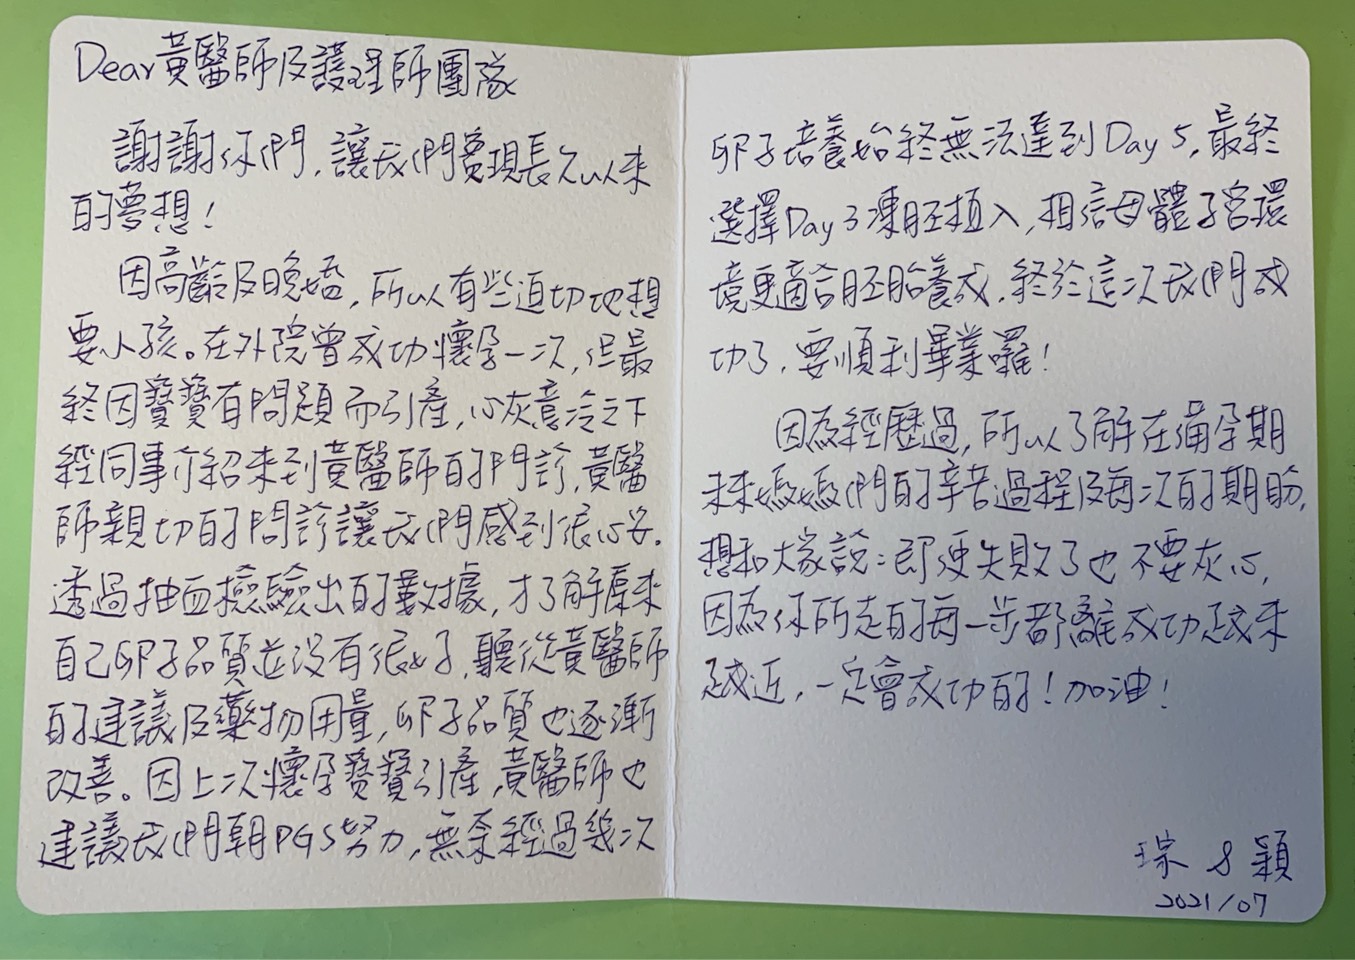 Dear黃醫師及護理師團隊
謝謝你們，讓我們實現長久以來
的夢想！
因高齡及晚婚，所以有些迫切地想
要小孩。在外院曾成功懷孕一次，但最
終因寶寶有問題而引產，心灰意冷之下
經同事介紹來到黃醫師的門診，黃醫
師親切的問診讓我們感到很心安。
透過抽血檢驗出的數據，才了解原來
自己卵子品質並沒有很好，聽從黃醫師
的建議及藥物用量，卵子品質也逐漸
改善。因上次懷孕寶寶引產，黃醫師也
建議我們朝PGS努力，無奈經過幾次
卵子培養始終無法達到Day 5，最終
選擇Day 3凍胚植入，相信母體子宮環
境更適合胚胎養成，終於這次我們成
功了，要順利畢業囉！
因為經歷過，所以了解在備孕期
未來媽媽們的辛苦過程及每次的期盼，
想和大家說：即便失敗了也不要灰心，
因為你所走的每一步都離成功越來
越近，一定會成功的！加油！
琮 & 穎
2021/07